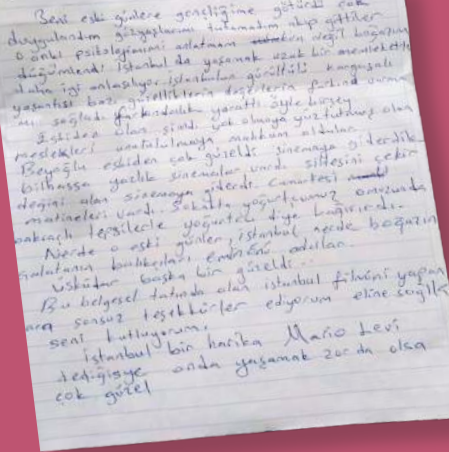 Beni eski günlere gençliğime götürdü çok
duygulandım gözyaşlarımı tutamadım akıp gittiler
O anki psikolojimi anlatmam değil boğazım
düğümlendi İstanbul da yaşamak uzak bir memlekette
daha iyi anlaşılıyor. istanbulun gürültülü kargaşalı
yaşantısı bazı güzelliklerin değerlerin farkına varma
mı sağladı farkındalık yarattı öyle birşey
Eskiden olan şimdi yok olmaya yüz tutmuş olan
meslekleri unutulmaya mahkum oldular.
Beyoğlu eskiden çok güzeldi sinemaya giderdik
bilhassa yazlık sinemalar vardı siltesini çekir
değini alan sinemaya giderdi. Cumartesi
matineleri vardı. Sokakta yoğurtçumuz omuzunda
bakraçlı tepsilerle yoğurtcu diye bağırırdı.
Nerde o eski günler, istanbul nerde boğazın
Galatanın balıkcıları eminönü adallar.
Üsküdar başka bir güzeldi...
Bu belgesel tadında olan istanbul filmini yapan
ara sonsuz teşekkürler ediyorum eline sağlık
seni kutluyorum.
İstanbul bir harika Mario Levi
dediğisye onda yaşamak zor da olsa
çok güzel